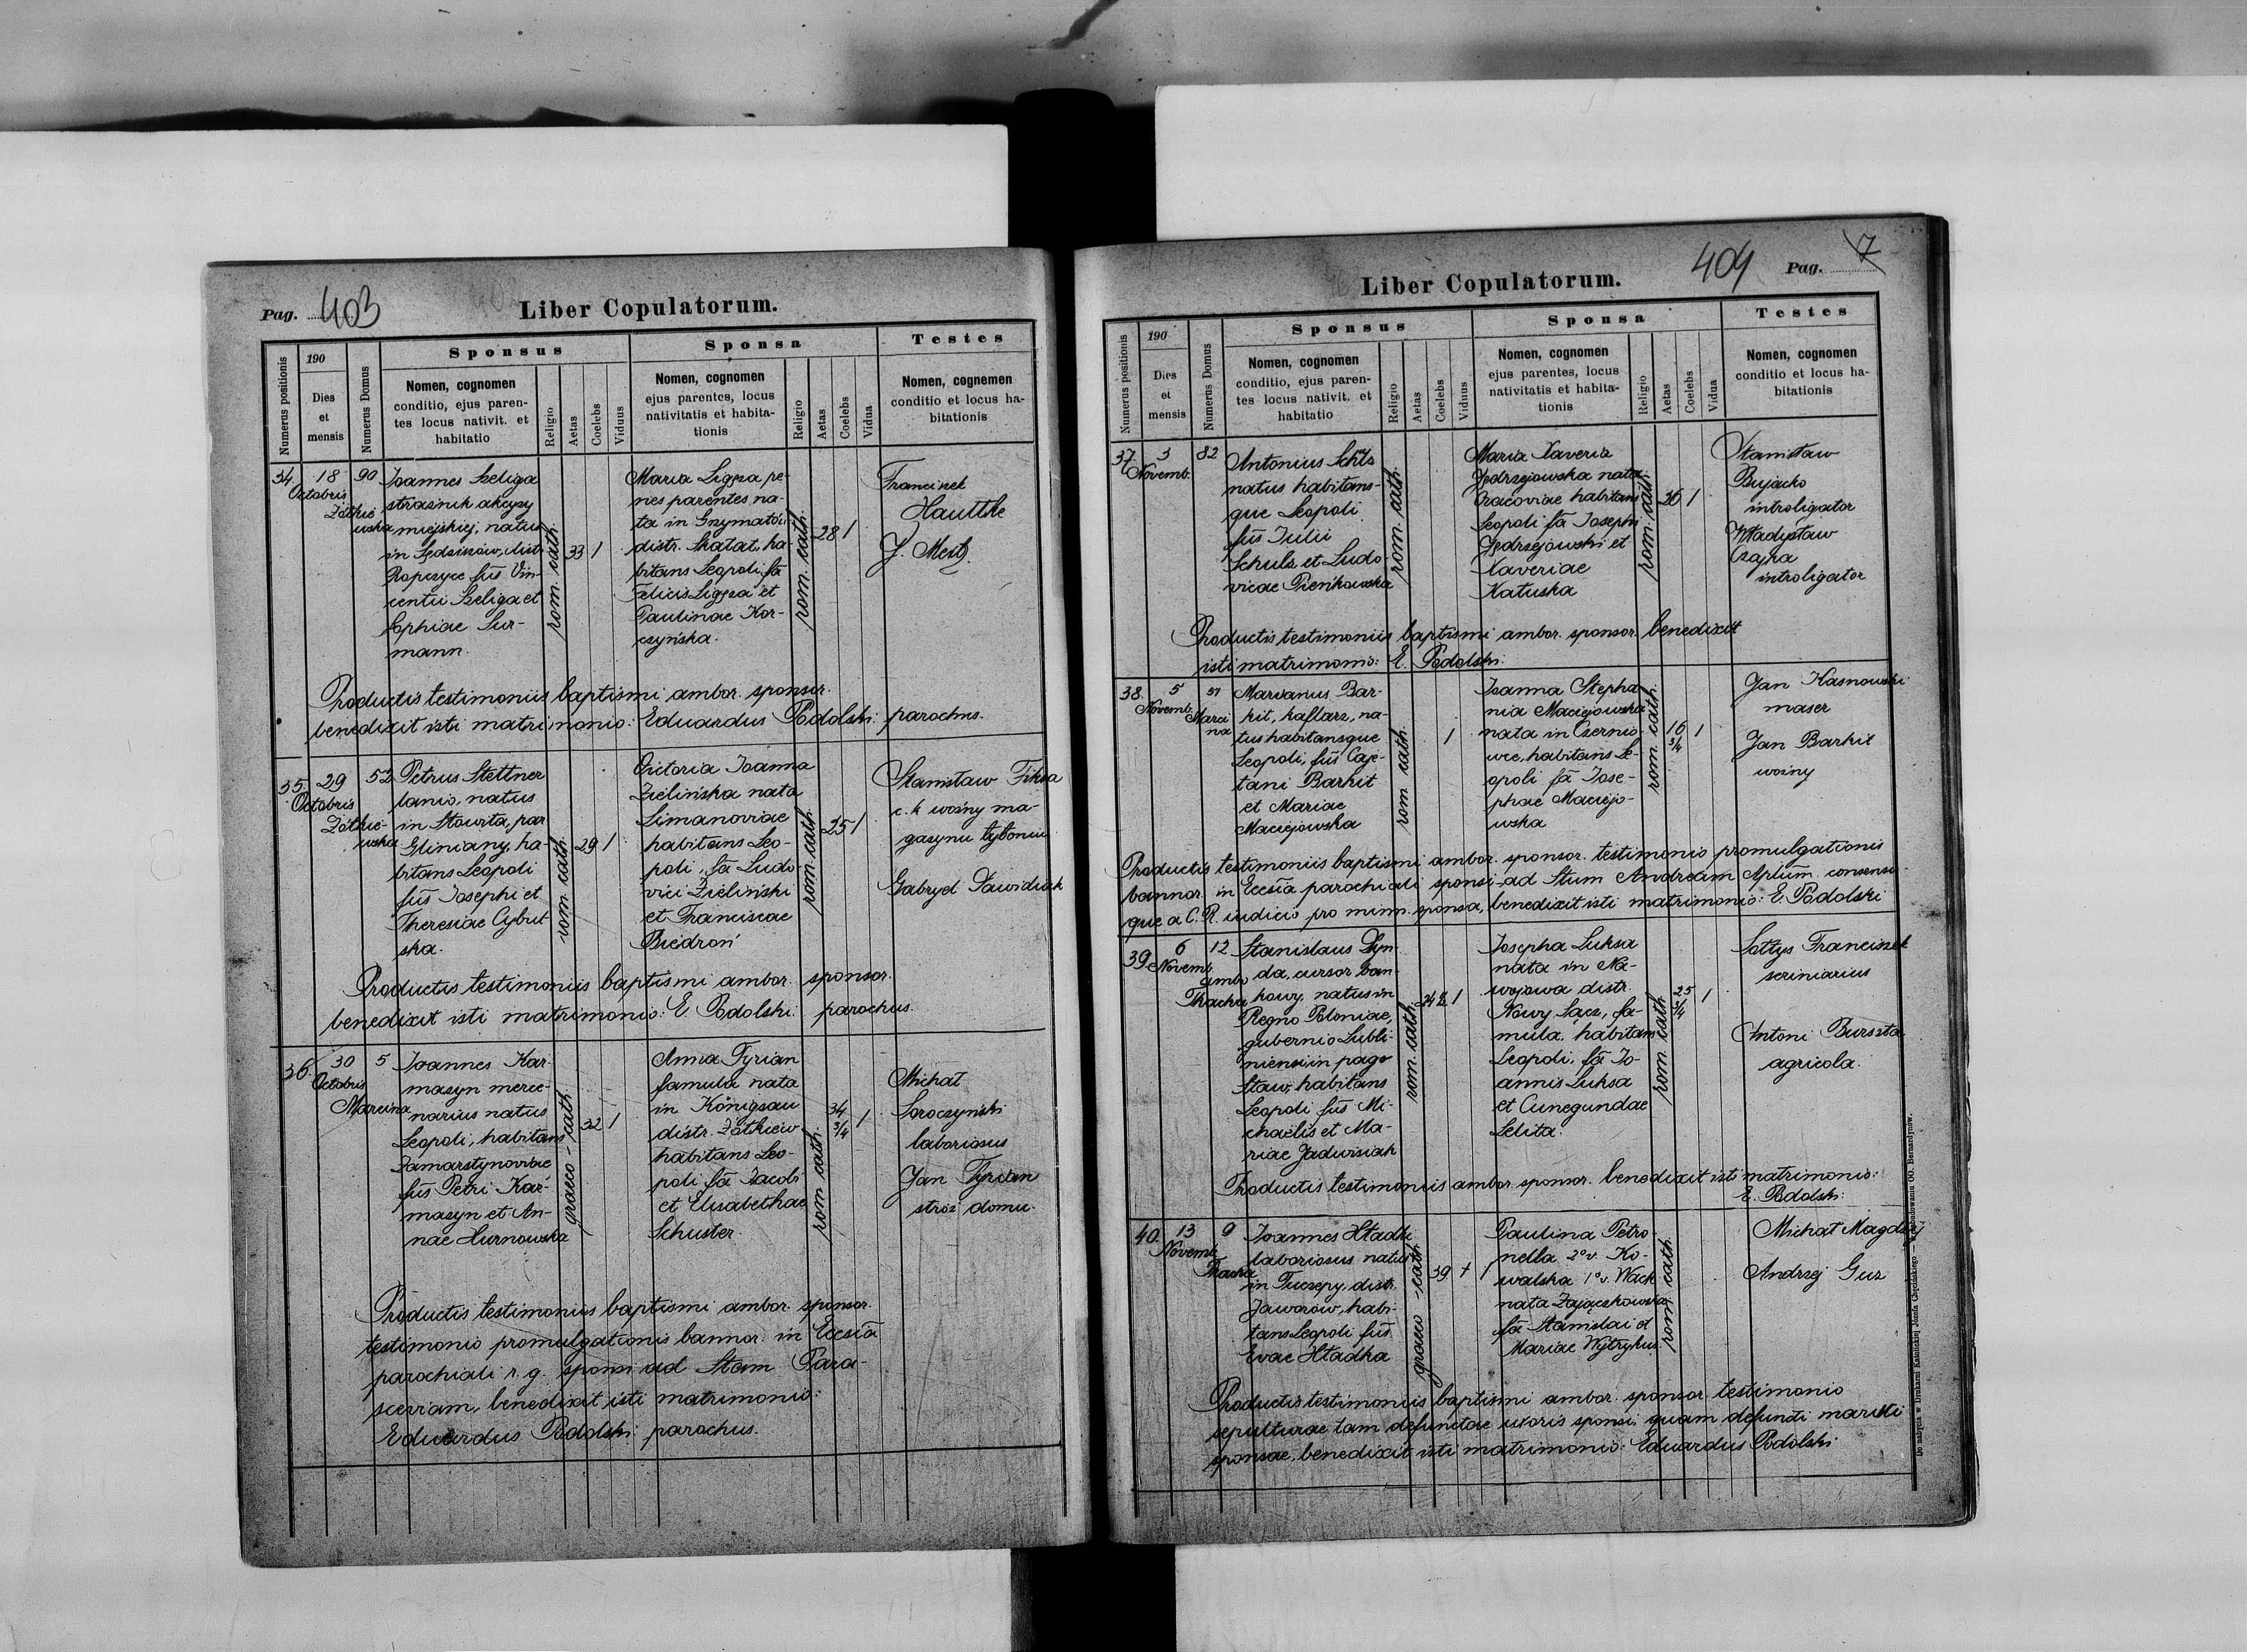 Pag. 403
Liber Copulatorum.
Numerus positionis
190
Dies
et
mensis
Numerus Domus
Sponsus
Nomen, cognomen
conditio, ejus paren-
tes locus nativit. et
habitatio
Religio
Aetas
Coelebs
Viduus
Sponsa
Nomen, cognomen
ejus parentes, locus
nativitatis et habita-
tionis
Religio
Aetas
Coelebs
Vidua
Testes
Nomen, cognemen
conditio et locus ha-
bitationis
34.
18
Octobris
90
Żółkie
wska
Joannes Szeliga
strażnik akcyzy
miejskiej, natus
in Sędziszów, distr
Ropczyce fūs Vin-
centii Szeliga et
Sophiae Sur-
mann.
rom. cath.
33
1
Maria Ligęza pe-
nes parentes na-
ta in Grzymałów
distr. Skałat, ha-
bitans Leopoli, fā
Felicis Ligęza et
Paulinae Kor-
czyńska.
rom. cath.
28
1
Franciszek
Hauttke
J. Mestz.
Productis testimoniis baptismi ambor. sponsor.
benedixit isti matrimonio: Eduardus Podolski parochus.
35.
29
Octobris
52
Żółkie-
wska
Petrus Stettner
lanio, natus
in Słowita, par
Gliniany, ha-
bitans Leopoli
fūs Josephi et
Theresiae Cybul
ska.
rom. cath.
29
1
Victoria Joanna
Zielińska nata
Limanoviae
habitans Leo-
poli, fā Ludo
vici Zieliński
et Franciscae
Biedroń
rom. cath.
25
1
Stanisław Fiksa
c. k woźny ma-
gazynu tytoniu
Gabryel Dawidiak
Productis testimoniis baptismi ambor. sponsor.
benedixit isti matrimonio: E. Podolski parochus.
36.
30
Octobris
5
Marcina
Joannes Kar-
mazyn merce-
narius natus
Leopoli, habitans
Zamarstynoviae
fūs Petri Kar-
mazyn et An-
nae Hurnowska
graeco-cath.
32
1
Anna Tyrian
famula nata
in Königsau
distr. Żółkiew
habitans Leo-
poli fā Jacobi
et Elisabethae
Schuster.
rom. cath.
34
3/4
1
Michał
Soroczyński
laboriosus
Jan Tyrian
stróż domu.
Productis testimoniis baptismi ambor. sponsor.
testimonio promulgationis bannor. in Ecclesia
parochiali r. g. sponsi ad Stam Para-
sceviam, benedixit isti matrimonio:
Eduardus Podolski parochus.
404 Pag. 7
Liber Copulatorum.
Numerus positionis
190
Dies
et
mensis
Numerus Domus
Sponsus
Nomen, cognomen
conditio, ejus paren-
tes locus nativit. et
habitatio
Religio
Aetas
Coelebs
Viduus
Sponsa
Nomen, cognomen
ejus parentes, locus
nativitatis et habita-
tionis
Religio
Aetas
Coelebs
Vidua
Testes
Nomen, cognomen
conditio et locus ha-
bitationis
37.
3
Novemb.
82
Antonius
natus habitans-
que Leopoli
fūs Julii
Schulz et Ludo
vicae Pieńkowska
rom. cath.
Maria Xaveria
Jędrzejowska nata
Cracoviae habitans
Leopoli fā Josephi
Jędrzejowski et
Xaveriae
Katuska
rom. cath.
36
1
Stanisław
Bujacko
introligator
Władysław
Czajka
introligator
Productis testimoniis baptismi ambor. sponsor. benedixit
isti matrimonio: E. Podolski.
38.
5
Novemb.
51
Marci
na
Marianus Bar-
kit, kaflarz, na-
tus habitansque
Leopoli, fūs Caje-
tani Barkit
et Mariae
Maciejowska
rom. cath.
1
Joanna Stepha
nia Maciejowska
nata in Czernio
wce, habitans Le-
opoli fā Jose-
phae Maciejo-
wska
rom. cath.
16
3/4
1
Jan Kasnowski
maser
Jan Barkit
woźny
Productis testimoniis baptismi ambor. sponsor. testimonio promulgationis
bannor. in Ecclesia parochiali sponsi ad Stum Andream Aplum. consensu-
que a C. R. iudicio pro minor. sponsa, benedixit isti matrimonio: E. Podolski
39.
6
Novemb.
12
Tkacka
Stanislaus Dyn-
da, cursor ban-
kowy, natus in
Regno Poloniae,
gubernio Lubli-
niensi in pago
Staw, habitans
Leopoli fūs Mi-
chaelis et Ma-
riae Jadwisiak
rom. cath.
1
Josepha Luksa
nata in Na-
wojowa distr.
Nowy Sącz, fa-
mula, habitans
Leopoli, fā Jo-
annis Luksa
et Cunegundae
Lelita.
rom. cath.
25
3/4
1
Sołtys Franciszek
scriniarius
Antoni Burszta
agricola.
Productis testimoniis ambor. sponsor. benedixit isti matrimonio:
E. Podolski
40.
13
Novemb.
9
Tkacka
Joannes Hładki
laboriosus natus
in Tuczępy, distr.
Jaworów, habi-
tans Leopoli fūs
Evae Hładka
graeco-cath.
39
1
Paulina Petro
nella 2º v. Ko-
walska 1º v. Wack
nata Zajączkowska
fā Stanislai et
Mariae Wytrykus.
rom. cath.
Michał Magdziej
Andrzej Guz
Productis testimoniis baptismi ambor. sponsor. testimonio
sepulturae tam defunctae uxoris sponsi, quam defuncti mariti
sponsae, benedixit isti matrimonio: Eduardus Podolski
Do nabycia w Drukarni Katolickiej Józefa Chęcińskiego — w zabudowaniu OO. Bernardynów.